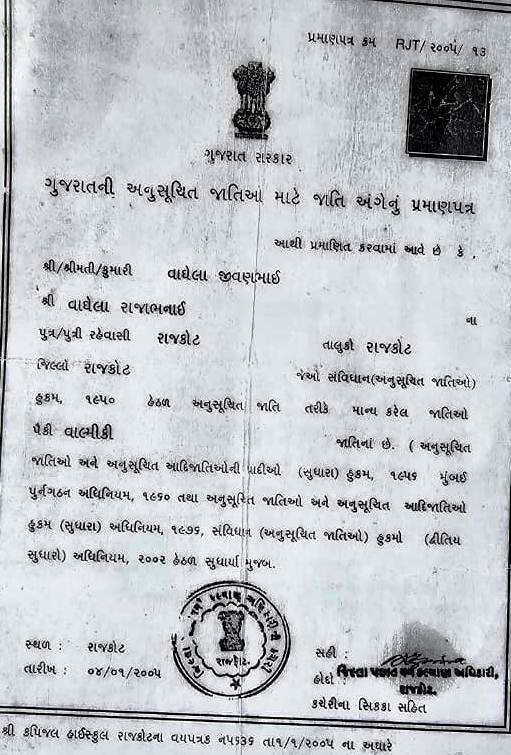 પ્રમાણપત્ર ક્રમ RJT/૨૦૦૫/ ૧૩
ગુજરાત સરકાર
ગુજરાતની અનુસૂચિત જાતિઓ માટે જાતિ અંગેનું પ્રમાણપત્ર
આથી પ્રમાણિત કરવામાં આવે છે કે ,
શ્રી/શ્રીમતી/કુમારી વાઘેલા જીવણભાઈ
શ્રી વાઘેલા રાજાભનાઈ ના
પુત્ર/પુત્રી રહેવાસી રાજકોટ તાલુકો રાજકોટ
જિલ્લો રાજકોટ જેઓ સંવિધાન(અનુસૂચિત જાતિઓ)
હુકમ, ૧૯૫૦ હેઠળ અનુસૂચિત જાતિ તરીકે માન્ય કરેલ જાતિઓ
પૈકી વાલ્મીકી જાતિનાં છે. ( અનુસૂચિત
જાતિઓ અને અનુસૂચિત આદિજાતિઓની યાદીઓ (સુધારા) હુકમ, ૧૯૫૬ મુંબઈ
પુર્નગઠન અધિનિયમ, ૧૯૬૦ તથા અનુસૂચિત જાતિઓ અને અનુસૂચિત આદિજાતિઓ
હુકમ (સુધારા) અધિનિયમ, ૧૯૭૬, સંવિધાન (અનુસૂચિત જાતિઓ) હુકમો (દ્વીતિય
સુધારો) અધિનિયમ, ૨૦૦૨ હેઠળ સુધાર્યા મુજબ.
રાજકોટ.
સ્થળ : રાજકોટ
તારીખ : ૦૪/૦૧/૨૦૦૫
સહી :
હોદ્દો : જિલ્લા પછાત વર્ગ કલ્યાણ અધિકારી,
રાજકોટ.
કચેરીના સિક્કા સહિત
શ્રી કપિજલ હાઈસ્કુલ રાજકોટના વયપત્રક નં૫૬૩૬ તા૧/૧/૨૦૦૫ ના અધારે